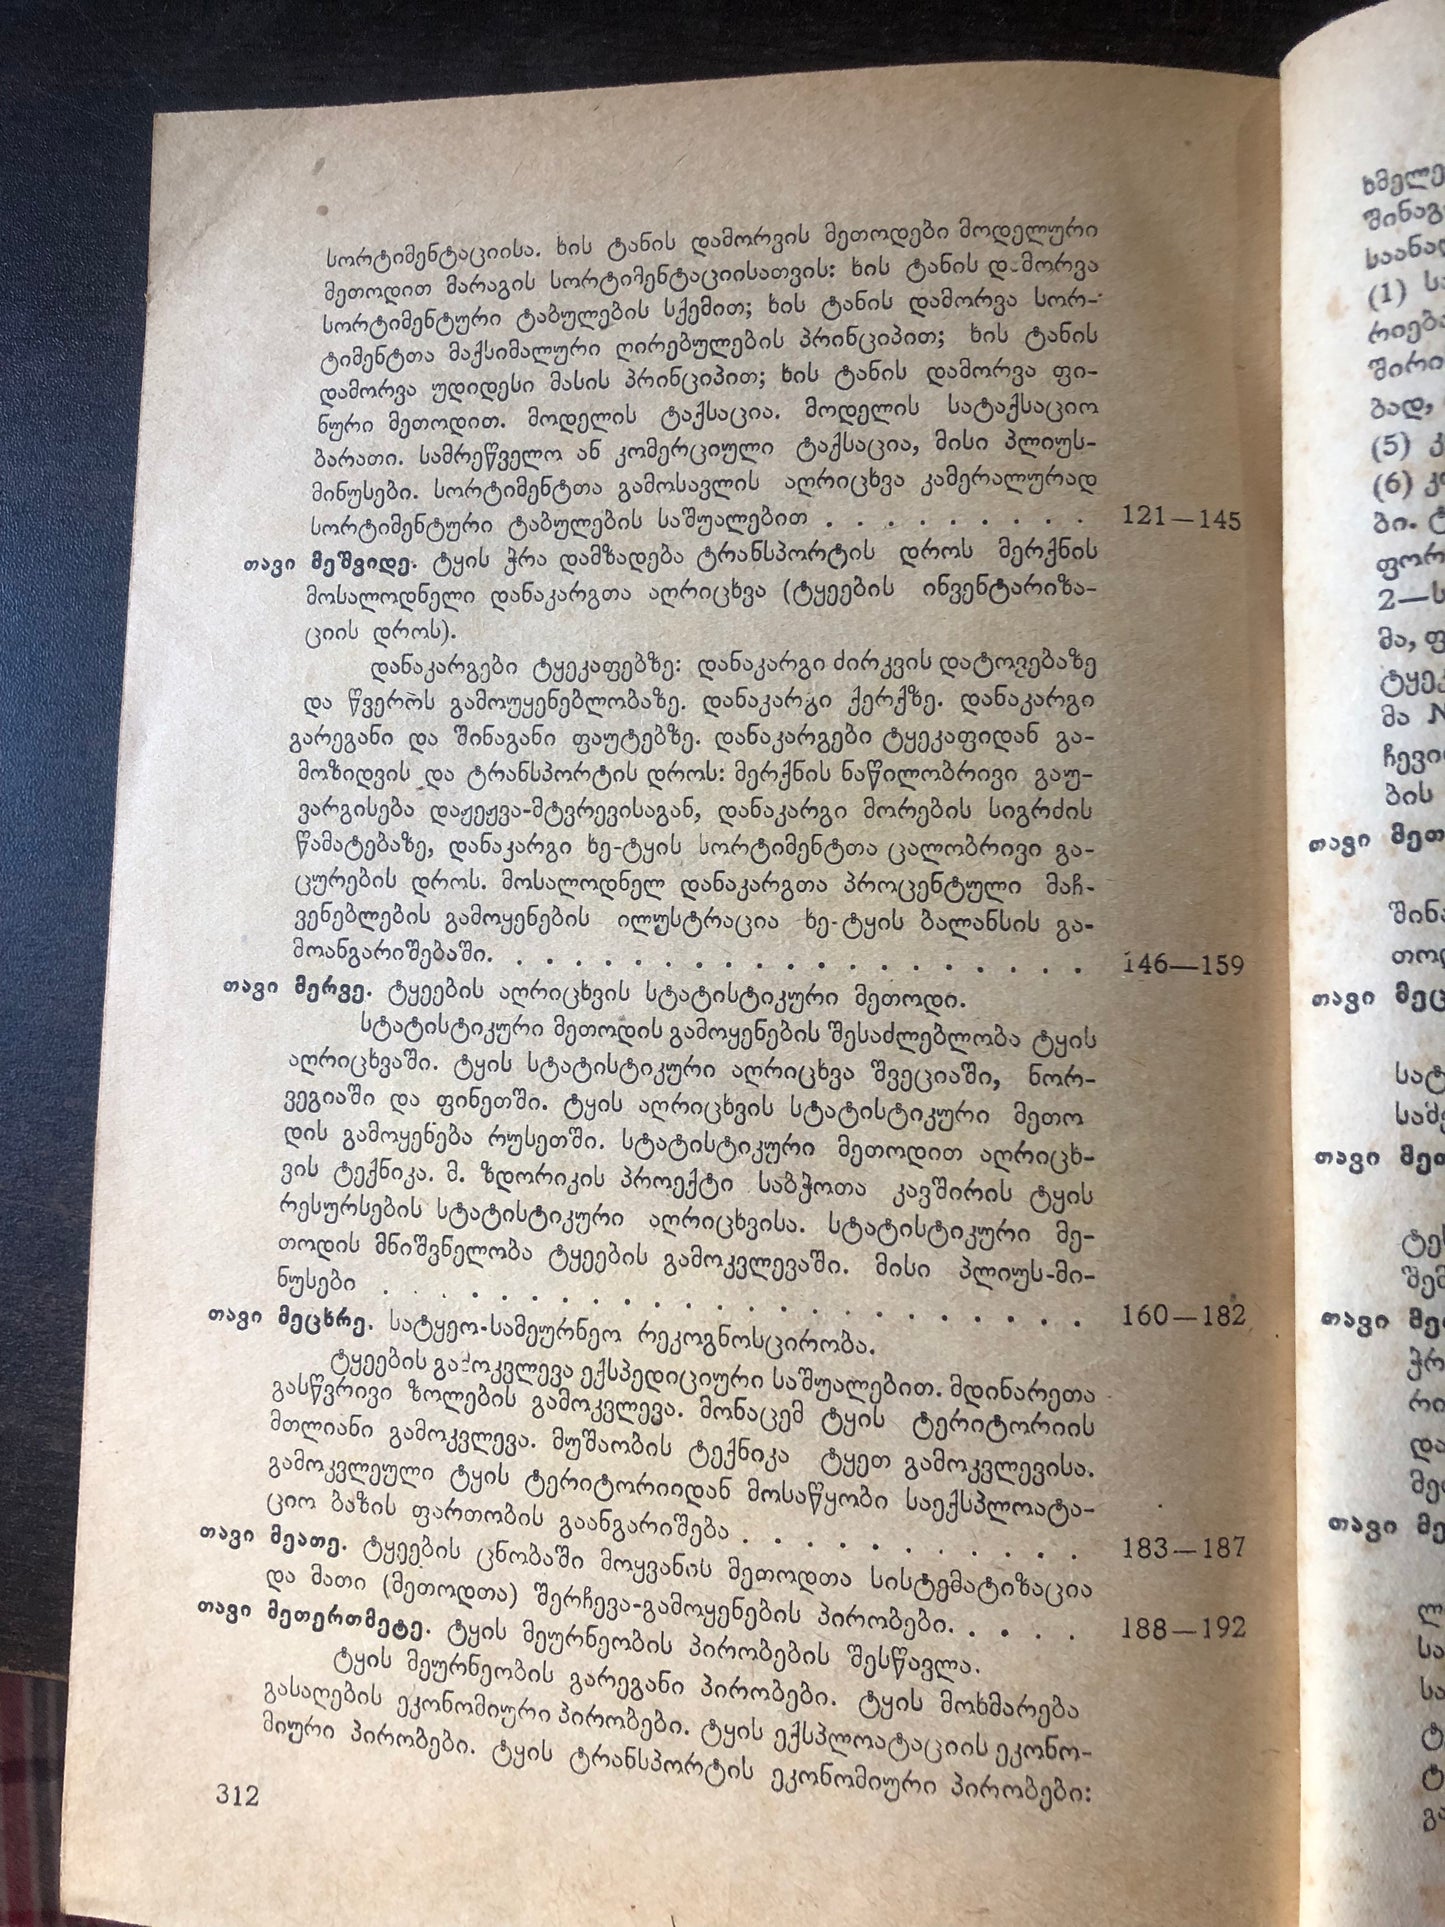 სორტიმენტაციისა. ხის ტანის დამორვის მეთოდები მოდელური
მეთოდით მარაგის სორტიმენტაციისათვის: ხის ტანის დამორვა
სორტიმენტური ტაბულების სქემით; ხის ტანის დამორვა სორ-
ტიმენტთა მაქსიმალური ღირებულების პრინციპით; ხის ტანის
დამორვა უდიდესი მასის პრინციპით; ხის ტანის დამორვა ფი-
ნური მეთოდით. მოდელის ტაქსაცია. მოდელის სატაქსაციო
ბარათი. სამრეწველო ან კომერციული ტაქსაცია, მისი პლიუს-
მინუსები. სორტიმენტთა გამოსავლის აღრიცხვა კამერალურად
სორტიმენტური ტაბულების საშუალებით . . . . . . . . . 121—145
თავი მეშვიდე. ტყის ჭრა დამზადება ტრანსპორტის დროს მერქნის
მოსალოდნელი დანაკარგთა აღრიცხვა (ტყეების ინვენტარიზა-
ციის დროს).
დანაკარგები ტყეკაფებზე: დანაკარგი ძირკვის დატოვებაზე
და წვეროს გამოუყენებლობაზე. დანაკარგი ქერქზე. დანაკარგი
გარეგანი და შინაგანი ფაუტებზე. დანაკარგები ტყეკაფიდან გა-
მოზიდვის და ტრანსპორტის დროს: მერქნის ნაწილობრივი გაუ-
ვარგისება დაჟეჟვა-მტვრევისაგან, დანაკარგი მორების სიგრძის
წამატებაზე, დანაკარგი ხე-ტყის სორტიმენტთა ცალობრივი გა-
ცურების დროს. მოსალოდნელ დანაკარგთა პროცენტული მაჩ-
ვენებლების გამოყენების ილუსტრაცია ხე-ტყის ბალანსის გა-
მოანგარიშებაში. . . . . . . . . . . . . . . . . . . . . 146—159
თავი მერვე. ტყეების აღრიცხვის სტატისტიკური მეთოდი.
სტატისტიკური მეთოდის გამოყენების შესაძლებლობა ტყის
აღრიცხვაში. ტყის სტატისტიკური აღრიცხვა შვეციაში, ნორ-
ვეგიაში და ფინეთში. ტყის აღრიცხვის სტატისტიკური მეთო
დის გამოყენება რუსეთში. სტატისტიკური მეთოდით აღრიცხ-
ვის ტექნიკა. მ. ზდორიკის პროექტი საბჭოთა კავშირის ტყის
რესურსების სტატისტიკური აღრიცხვისა. სტატისტიკური მე-
თოდის მნიშვნელობა ტყეების გამოკვლევაში. მისი პლიუს-მი-
ნუსები . . . . . . . . . . . . . . . . . . . . . . . . 160—182
თავი მეცხრე. სატყეო-სამეურნეო რეკოგნოსცირობა.
ტყეების გამოკვლევა ექსპედიციური საშუალებით. მდინარეთა
გასწვრივი ზოლების გამოკვლევა. მონაცემ ტყის ტერიტორიის
მთლიანი გამოკვლევა. მუშაობის ტექნიკა ტყეთ გამოკვლევისა.
გამოკვლეული ტყის ტერიტორიიდან მოსაწყობი საექსპლოატა-
ციო ბაზის ფართობის გაანგარიშება . . . . . . . . . . . . 183—187
თავი მეათე. ტყეების ცნობაში მოყვანის მეთოდთა სისტემატიზაცია
და მათი (მეთოდთა) შერჩევა-გამოყენების პირობები. . . . . 188—192
თავი მეთერთმეტე. ტყის მეურნეობის პირობების შესწავლა.
ტყის მეურნეობის გარეგანი პირობები. ტყის მოხმარება
გასაღების ეკონომიური პირობები. ტყის ექსპლოატაციის ეკონო-
მიური პირობები. ტყის ტრანსპორტის ეკონომიური პირობები:
312
შინაგ
(1)
ბად,
(5)
(6)
2—ს
ბის
თავი
თავი
თავი
თავი
თავი